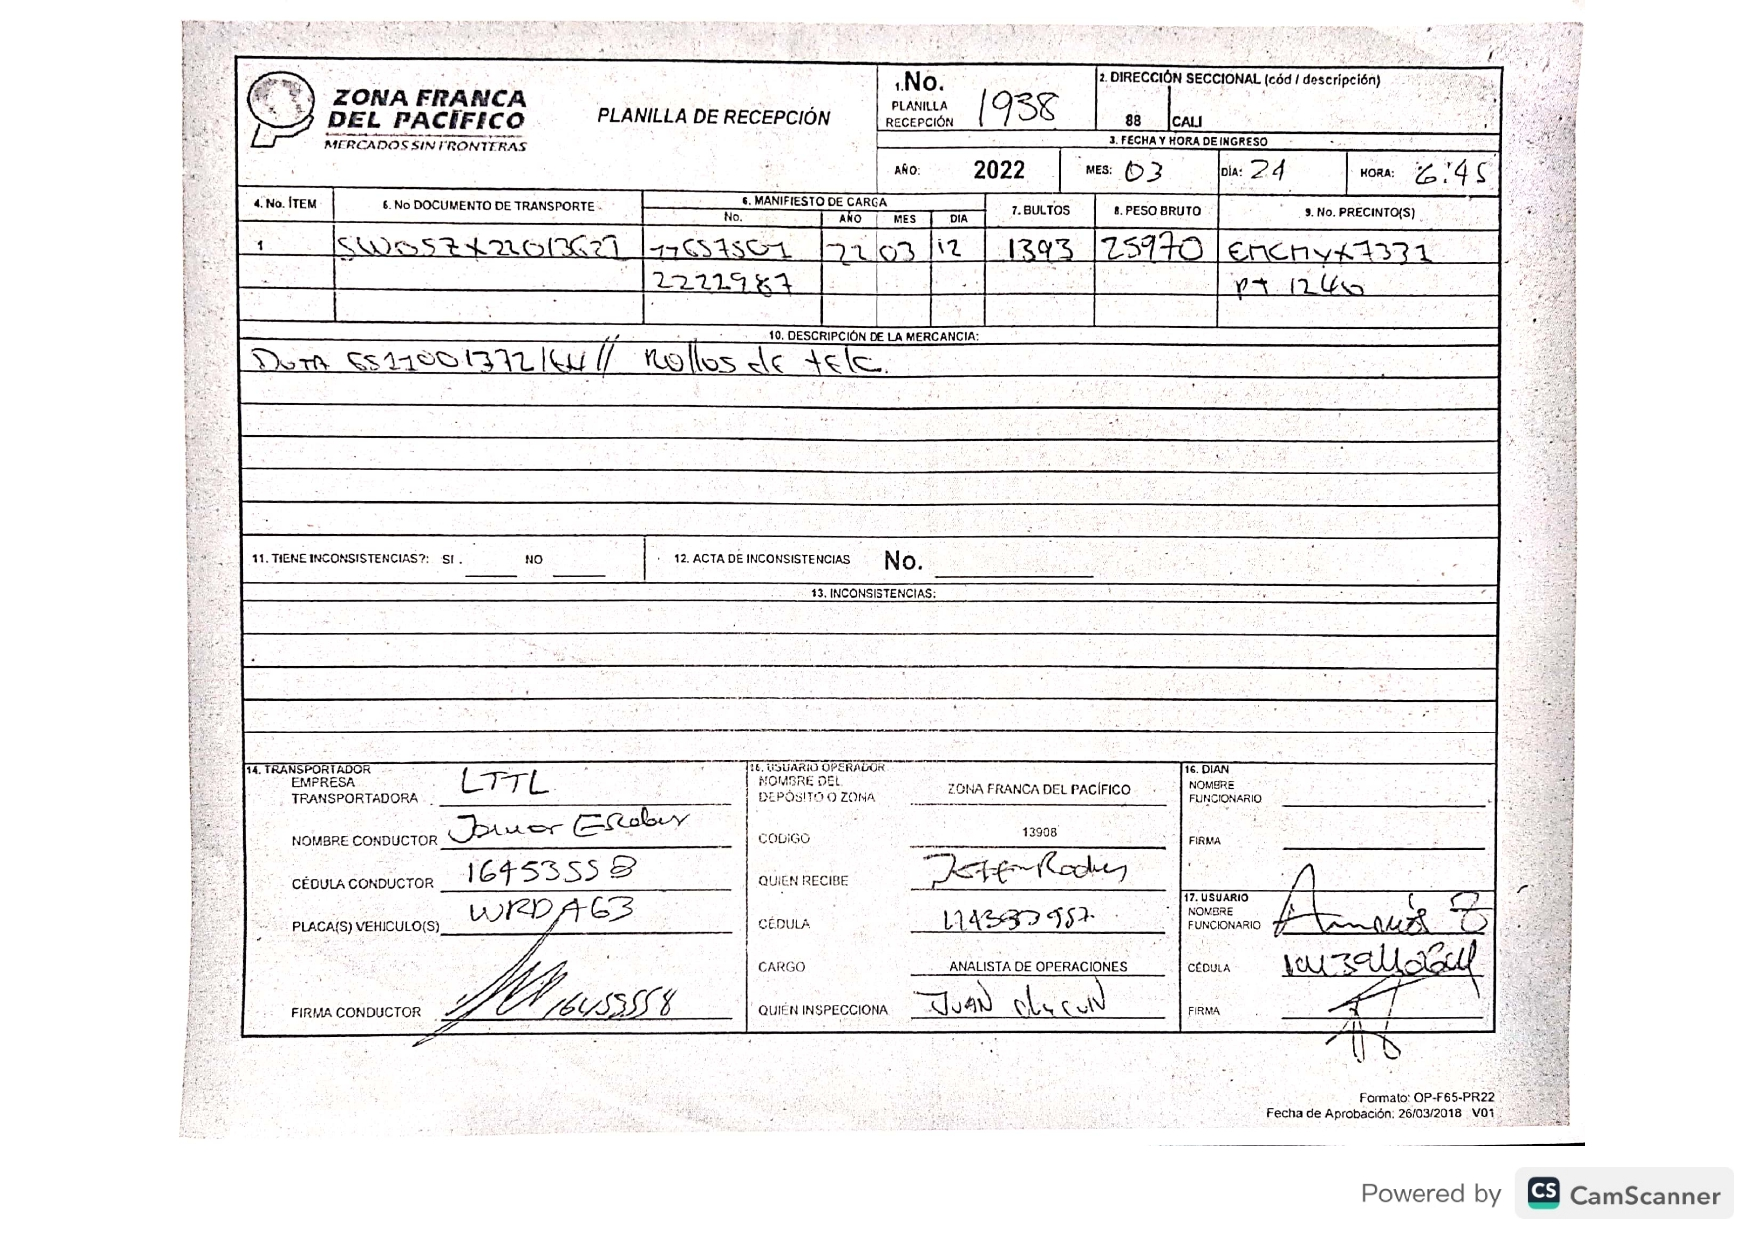 ZONA FRANCA
DEL PACÍFICO
MERCADOS SIN FRONTERAS
PLANILLA DE RECEPCIÓN
1. No. PLANILLA RECEPCIÓN 1938
2. DIRECCIÓN SECCIONAL (cód / descripción)
88 CALI
3. FECHA Y HORA DE INGRESO
AÑO: 2022 MES: 03 DÍA: 21 HORA: 6:45
4. No. ÍTEM 5. No DOCUMENTO DE TRANSPORTE 6. MANIFIESTO DE CARGA 7. BULTOS 8. PESO BRUTO 9. No. PRECINTO(S)
No. AÑO MES DIA
1 22 03 12 1393 25970
2222987 1240
10. DESCRIPCIÓN DE LA MERCANCIA:
DUTA // Rollos de tela.
11. TIENE INCONSISTENCIAS?: SI NO 12. ACTA DE INCONSISTENCIAS No.
13. INCONSISTENCIAS:
14. TRANSPORTADOR
EMPRESA TRANSPORTADORA LTTL
NOMBRE CONDUCTOR Escobar
CÉDULA CONDUCTOR 16453558
PLACA(S) VEHICULO(S) WRDA63
FIRMA CONDUCTOR 16453558
15. USUARIO OPERADOR
NOMBRE DEL DEPÓSITO O ZONA ZONA FRANCA DEL PACÍFICO
CODIGO 13908
QUIEN RECIBE
CÉDULA
CARGO ANALISTA DE OPERACIONES
QUIÉN INSPECCIONA JUAN
16. DIAN
NOMBRE FUNCIONARIO
FIRMA
17. USUARIO
NOMBRE FUNCIONARIO
CÉDULA
FIRMA
Formato: OP-F65-PR22
Fecha de Aprobación: 26/03/2018 V01
Powered by CS CamScanner